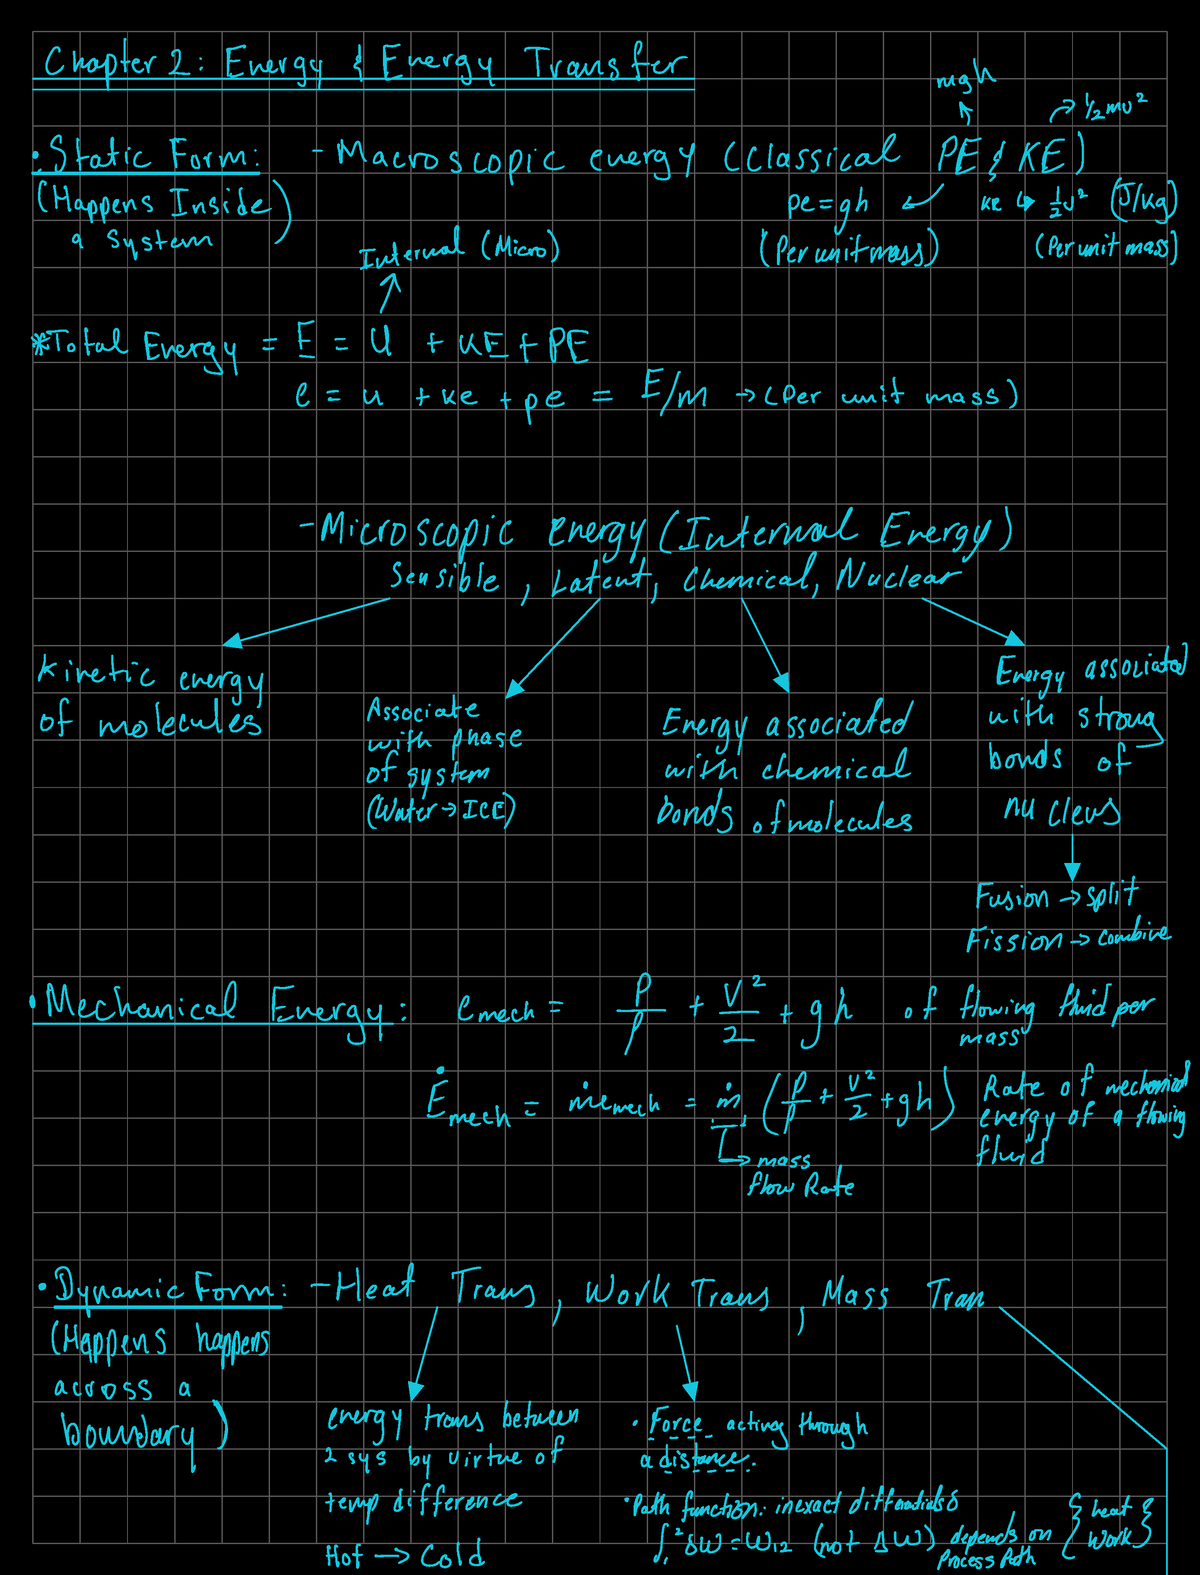 Chapter 2: Energy & Energy Transfer
mgh
½mv²
• Static Form: - Macroscopic energy (Classical PE & KE)
(Happens Inside a System)
pe = gh
(Per unit mass)
ke ↳ ½v² (J/kg)
(Per unit mass)
Internal (Micro)
*Total Energy = E = U + KE + PE
e = u + ke + pe = E/m → (Per unit mass)
- Microscopic energy (Internal Energy)
Sensible, Latent, Chemical, Nuclear
Kinetic energy
of molecules
Associate
with phase
of system
(Water → ICE)
Energy associated
with chemical
bonds of molecules
Energy associated
with strong
bonds of
nucleus
Fusion → split
Fission → combine
• Mechanical Energy: e mech = P/ρ + V²/2 + gh of flowing fluid per
mass
Ė mech = ṁe mech = ṁ (P/ρ + V²/2 + gh)
Rate of mechanical
energy of a flowing
fluid
↳ mass
flow Rate
• Dynamic Form: - Heat Trans, Work Trans, Mass Tran
(Happens happens
across a
boundary)
energy trans between
2 sys by virtue of
temp difference
Hot → Cold
• Force acting through
a distance.
• Path function: inexact differentials δ
∫₁² δW = W₁₂ (not ΔW) depends on
Process Path
{heat
Work}